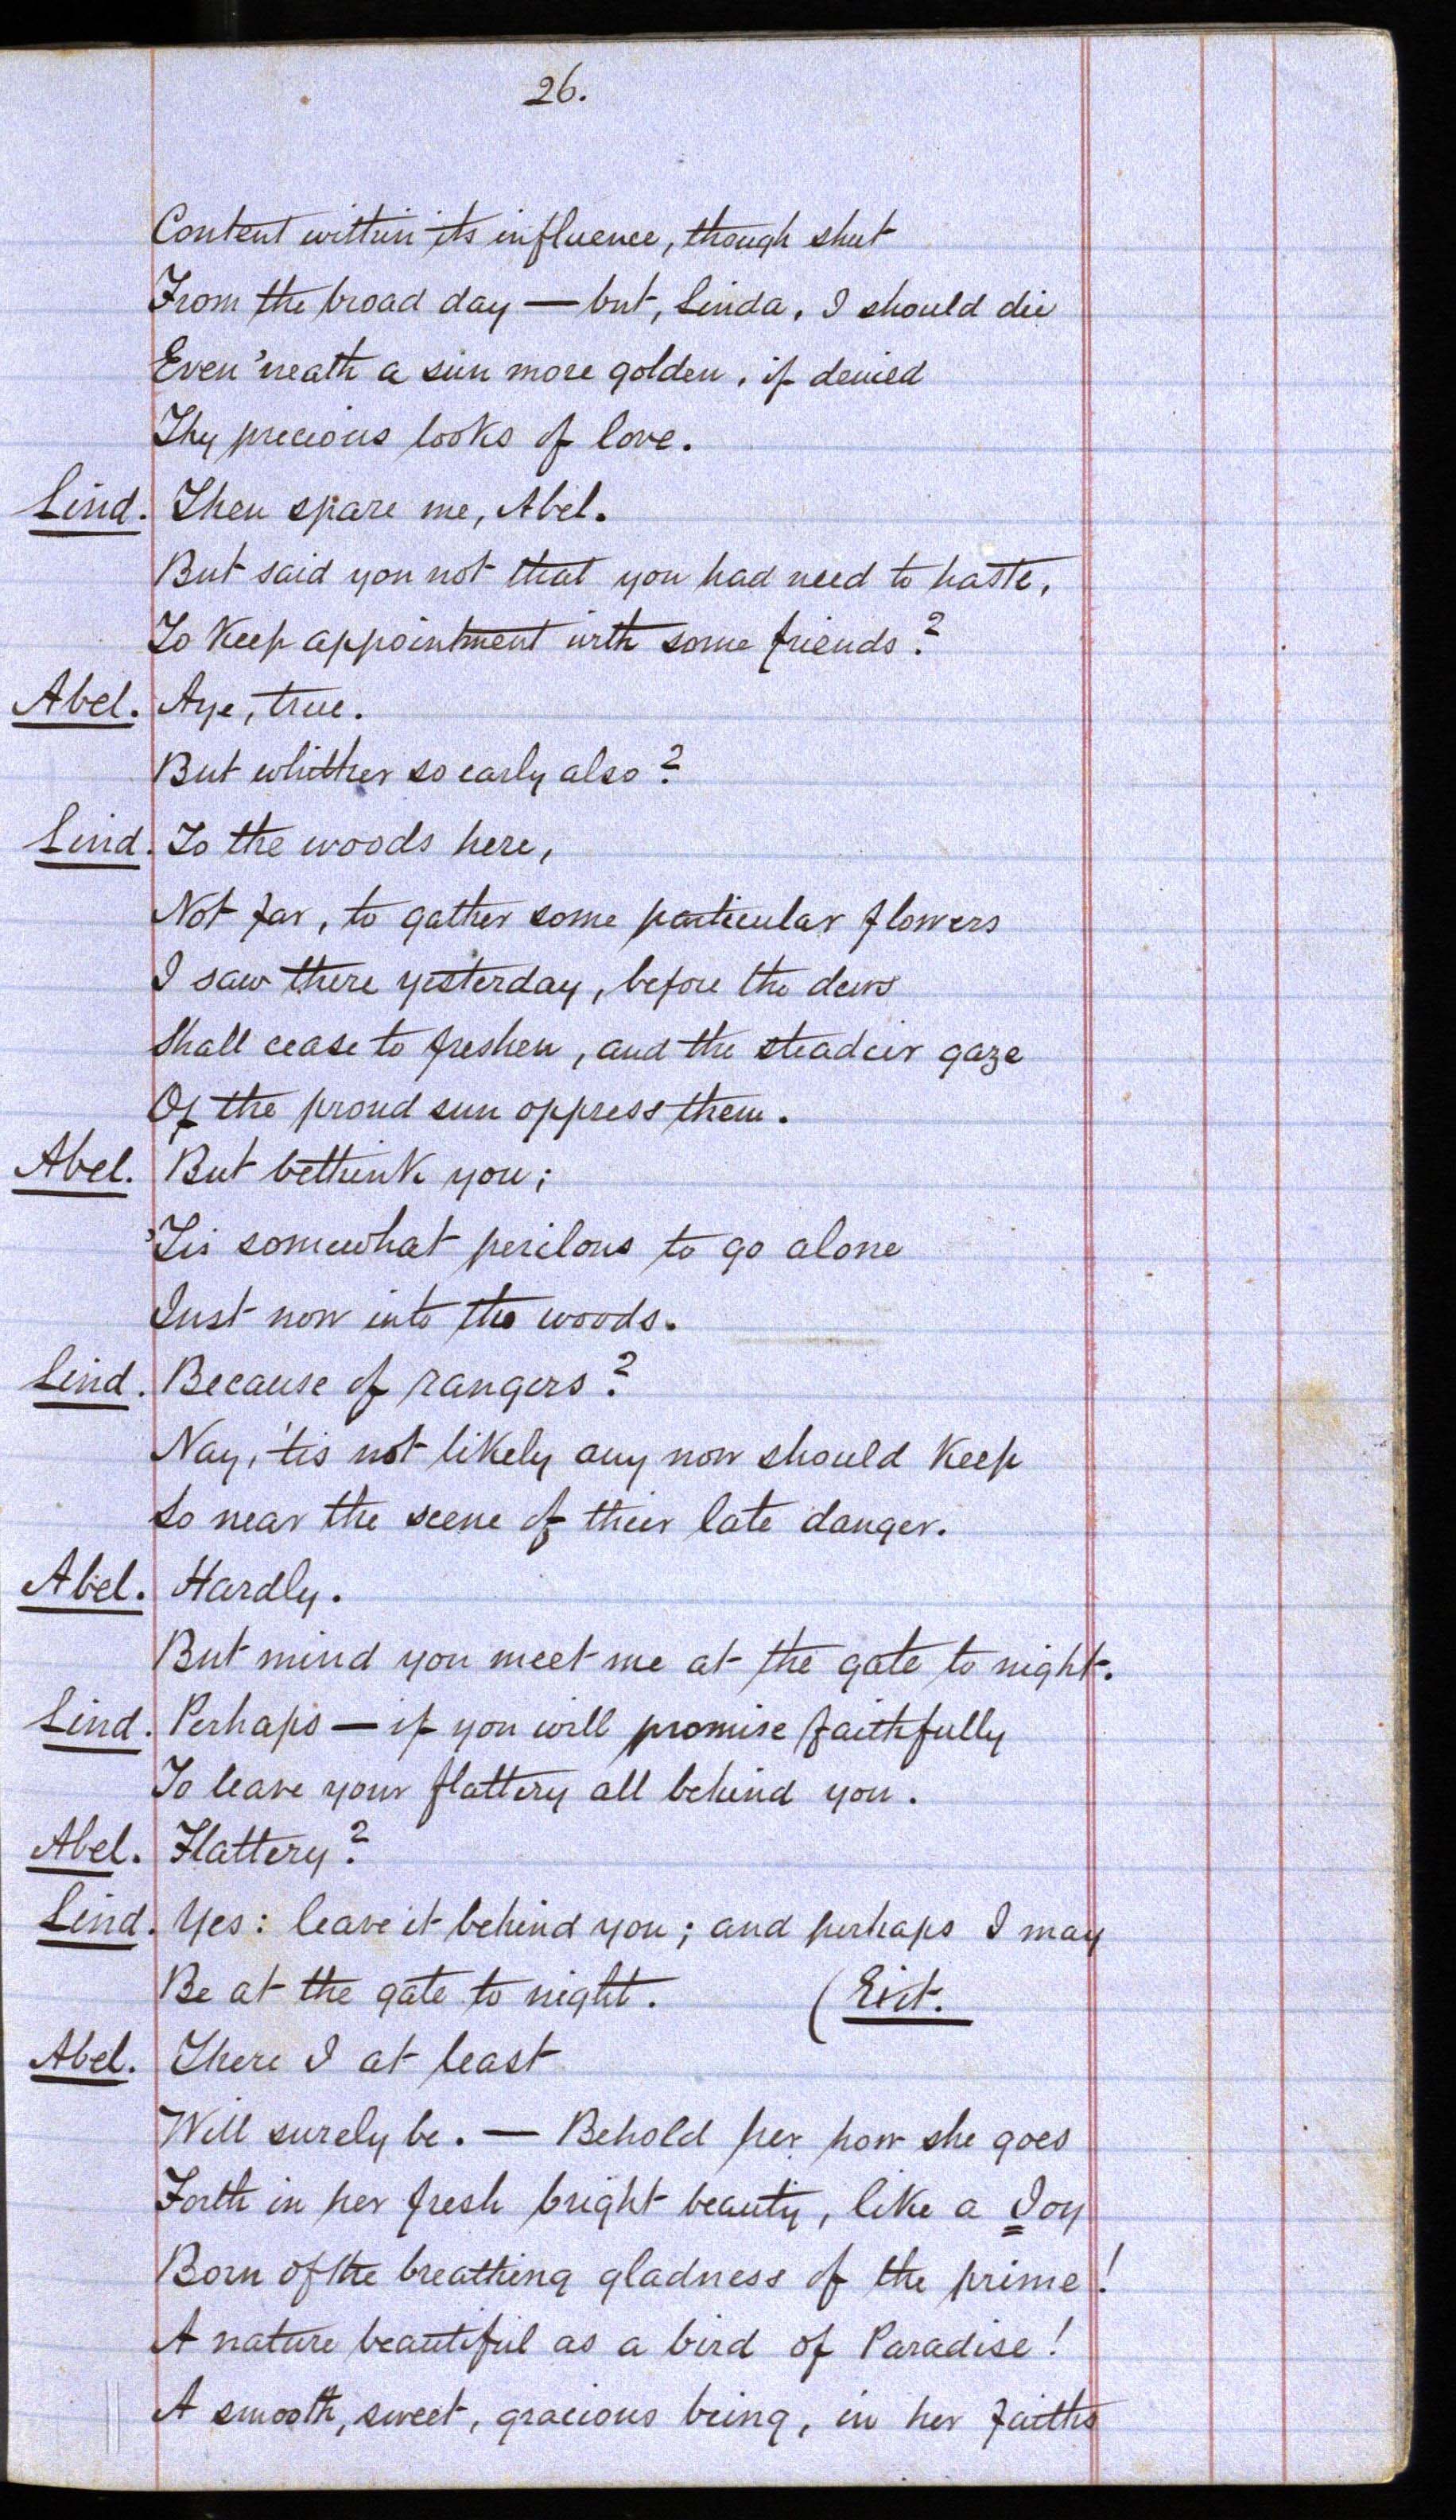 26.
Content within its influence, though shut
From the broad day — but, Linda, I should die
Even 'neath a sun more golden, if denied
Thy precious looks of love.
Lind. Then spare me, Abel.
But said you not that you had need to haste,
To keep appointment with some friends?
Abel. Aye, true.
But whither so early also?
Lind. To the woods here,
Not far, to gather some particular flowers
I saw there yesterday, before the dews
Shall cease to freshen, and the steadier gaze
Of the proud sun oppress them.
Abel. But bethink you;
'Tis somewhat perilous to go alone
Just now into the woods.
Lind. Because of rangers?
Nay, 'tis not likely any now should keep
So near the scene of their late danger.
Abel. Hardly.
But mind you meet me at the gate to night.
Lind. Perhaps — if you will promise faithfully
To leave your flattery all behind you.
Abel. Flattery?
Lind. Yes: leave it behind you; and perhaps I may
Be at the gate to night. (Exit.
Abel. There I at least
Will surely be. — Behold her how she goes
Forth in her fresh bright beauty, like a Joy
Born of the breathing gladness of the prime!
A nature beautiful as a bird of Paradise!
A smooth, sweet, gracious being, in her faiths